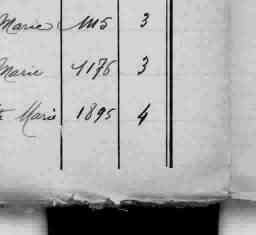 Marie 1115 3
Marie 1176 3
Marie 1895 4